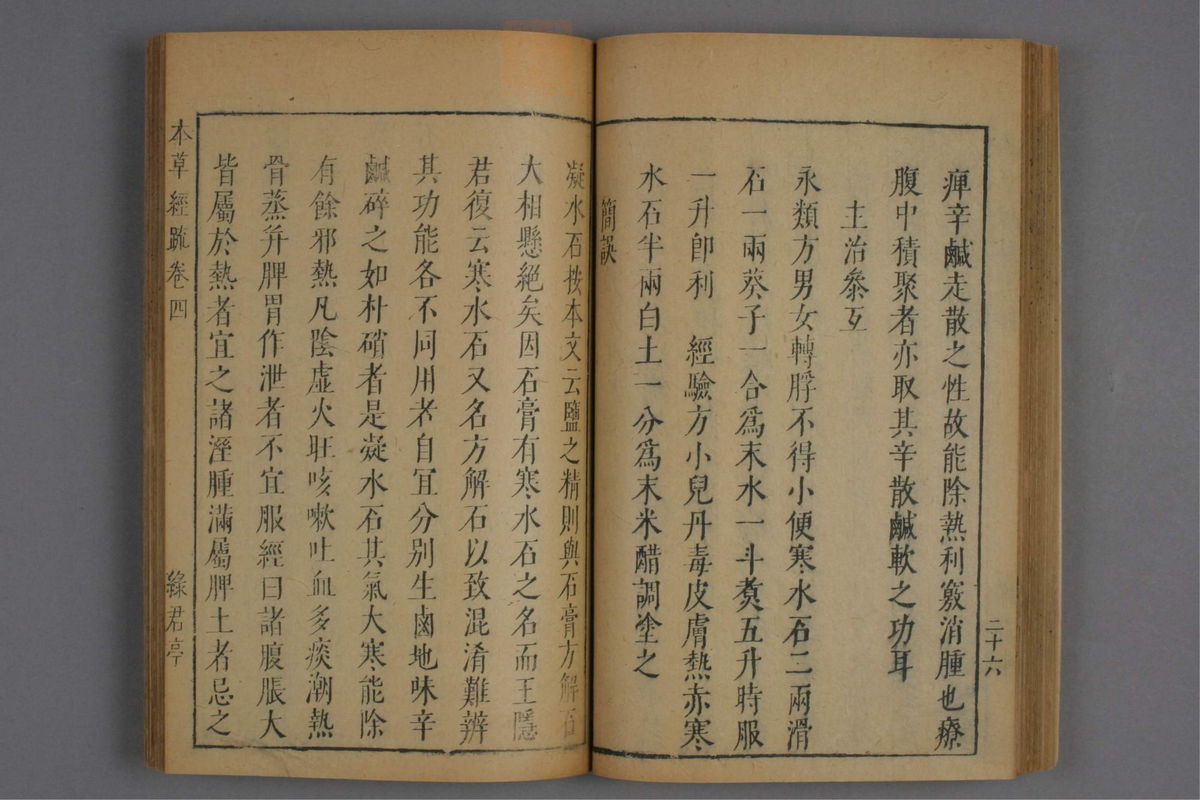 痺辛鹹走散之性故能除熱利竅消腫也療
腹中積聚者亦取其辛散鹹軟之功耳
主治叅互
永類方男女轉脬不得小便寒水石二兩滑
石一兩葵子一合爲末水一斗煑五升時服
一升卽利　經驗方小兒丹毒皮膚熱赤寒
水石半兩白土一分爲末米醋調塗之
簡誤
二十六
凝水石按本文云鹽之精則與石膏方解石
大相懸絕矣因石膏有寒水石之名而王隱
君復云寒水石又名方解石以致混淆難辨
其功能各不同用者自宜分別生鹵地味辛
鹹碎之如朴硝者是凝水石其氣大寒能除
有餘邪熱凡陰虛火旺咳嗽吐血多痰潮熱
骨蒸并脾胃作泄者不宜服經曰諸腹脹大
皆屬於熱者宜之諸溼腫滿屬脾土者忌之
本草經疏卷四
綠君亭